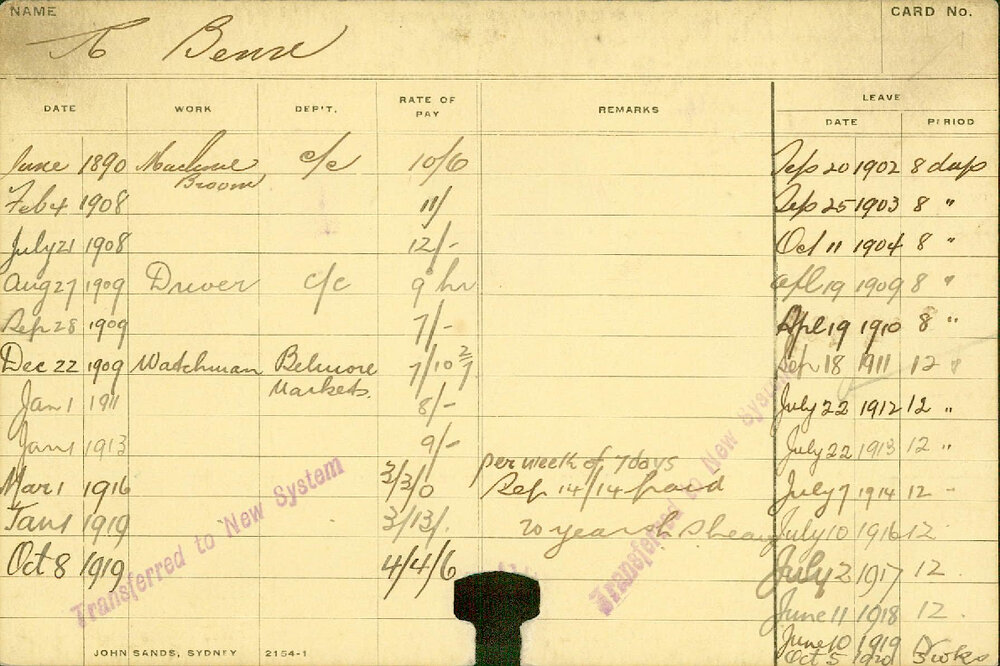 NAME
CARD No.
DATE WORK DEP'T. RATE OF PAY REMARKS LEAVE
DATE PERIOD
June 1890 Machine Broom c/c 10/6 Sep 20 1902 8 days
Feb 4 1908 11/ Sep 25 1903 8 "
July 21 1908 12/- Oct 11 1904 8 "
Aug 27 1909 Driver c/c 9 hr Apl 19 1909 8 "
Sep 28 1909 7/- Apl 19 1910 8 "
Dec 22 1909 Watchman Belmore Markets. 7/10 2/7 Sep 18 1911 12 "
Jan 1 1911 8/- July 22 1912 12 "
Jan 1 1913 9/- July 22 1913 12 "
per week of 7 days
Mar 1 1916 3/3/0 Sep 14/14 paid July 7 1914 12 -
Jan 1 1919 3/13/. 20 years July 10 1916 12
Oct 8 1919 4/4/6 July 2 1917 12.
June 11 1918 12.
June 10 1919
Oct 5 1920 3 wks
Transferred to New System
Transferred to New System
JOHN SANDS, SYDNEY 2154-1